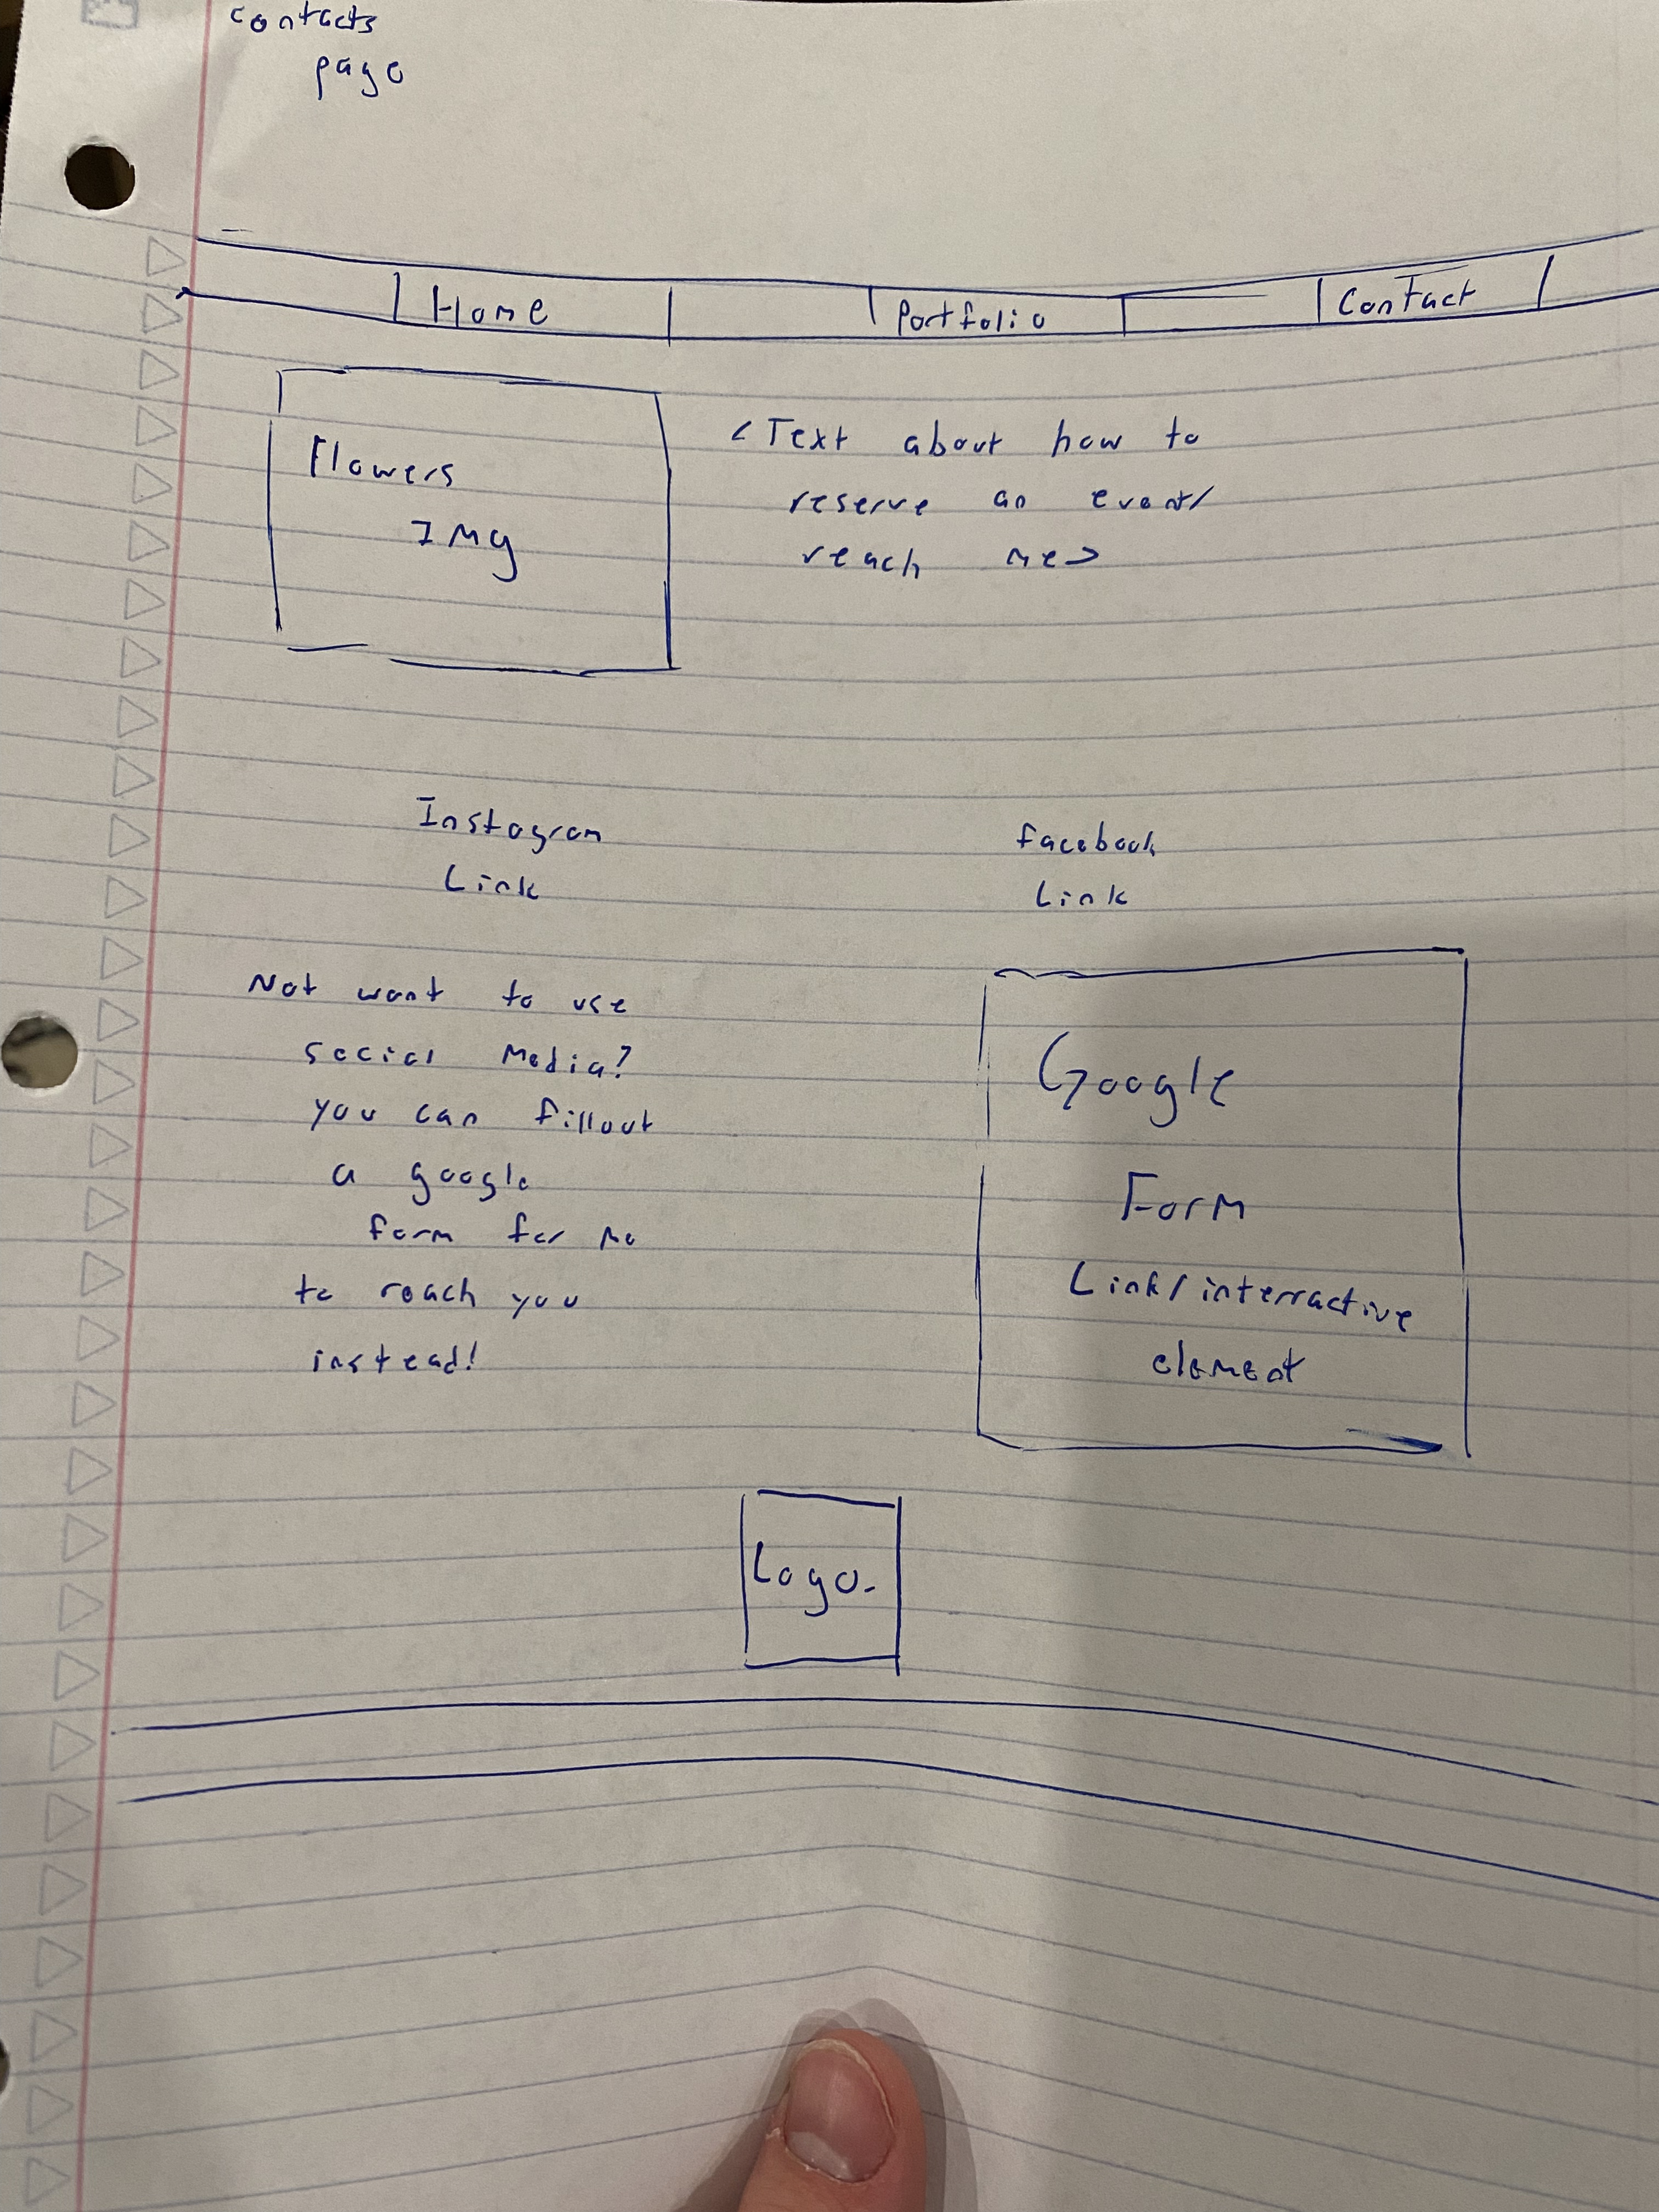 contacts
page
Home
Portfolio
Contact
Flowers
Img
<Text about how to
reserve an event/
reach me>
Instagram
Link
facebook
Link
Not want to use
social Media?
you can fillout
a google
form for me
to reach you
instead!
Google
Form
Link/interractive
element
Logo.